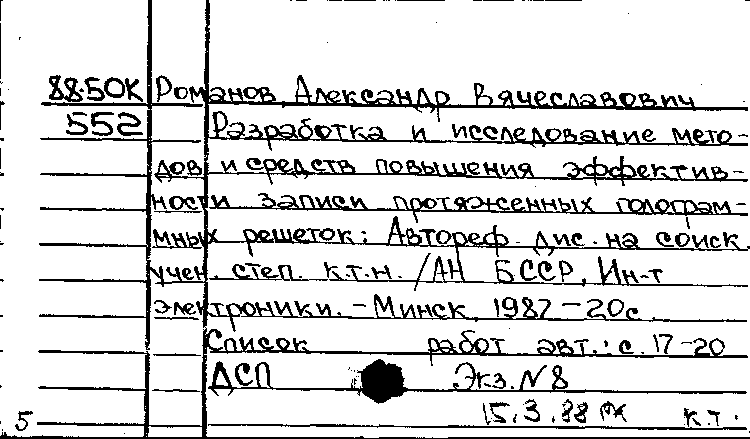 88-50К Романов, Александр Вячеславович
552 Разработка и исследование мето-
дов и средств повышения эффектив-
ности записи протяженных голограм-
мных решеток: Автореф. дис. на соиск.
учен. степ. к.т.н. /АН БССР, Ин-т
электроники. – Минск, 1987 – 20с.
Список работ авт.: с. 17-20
ДСП Экз. №8
15.3.88 к.т.
5